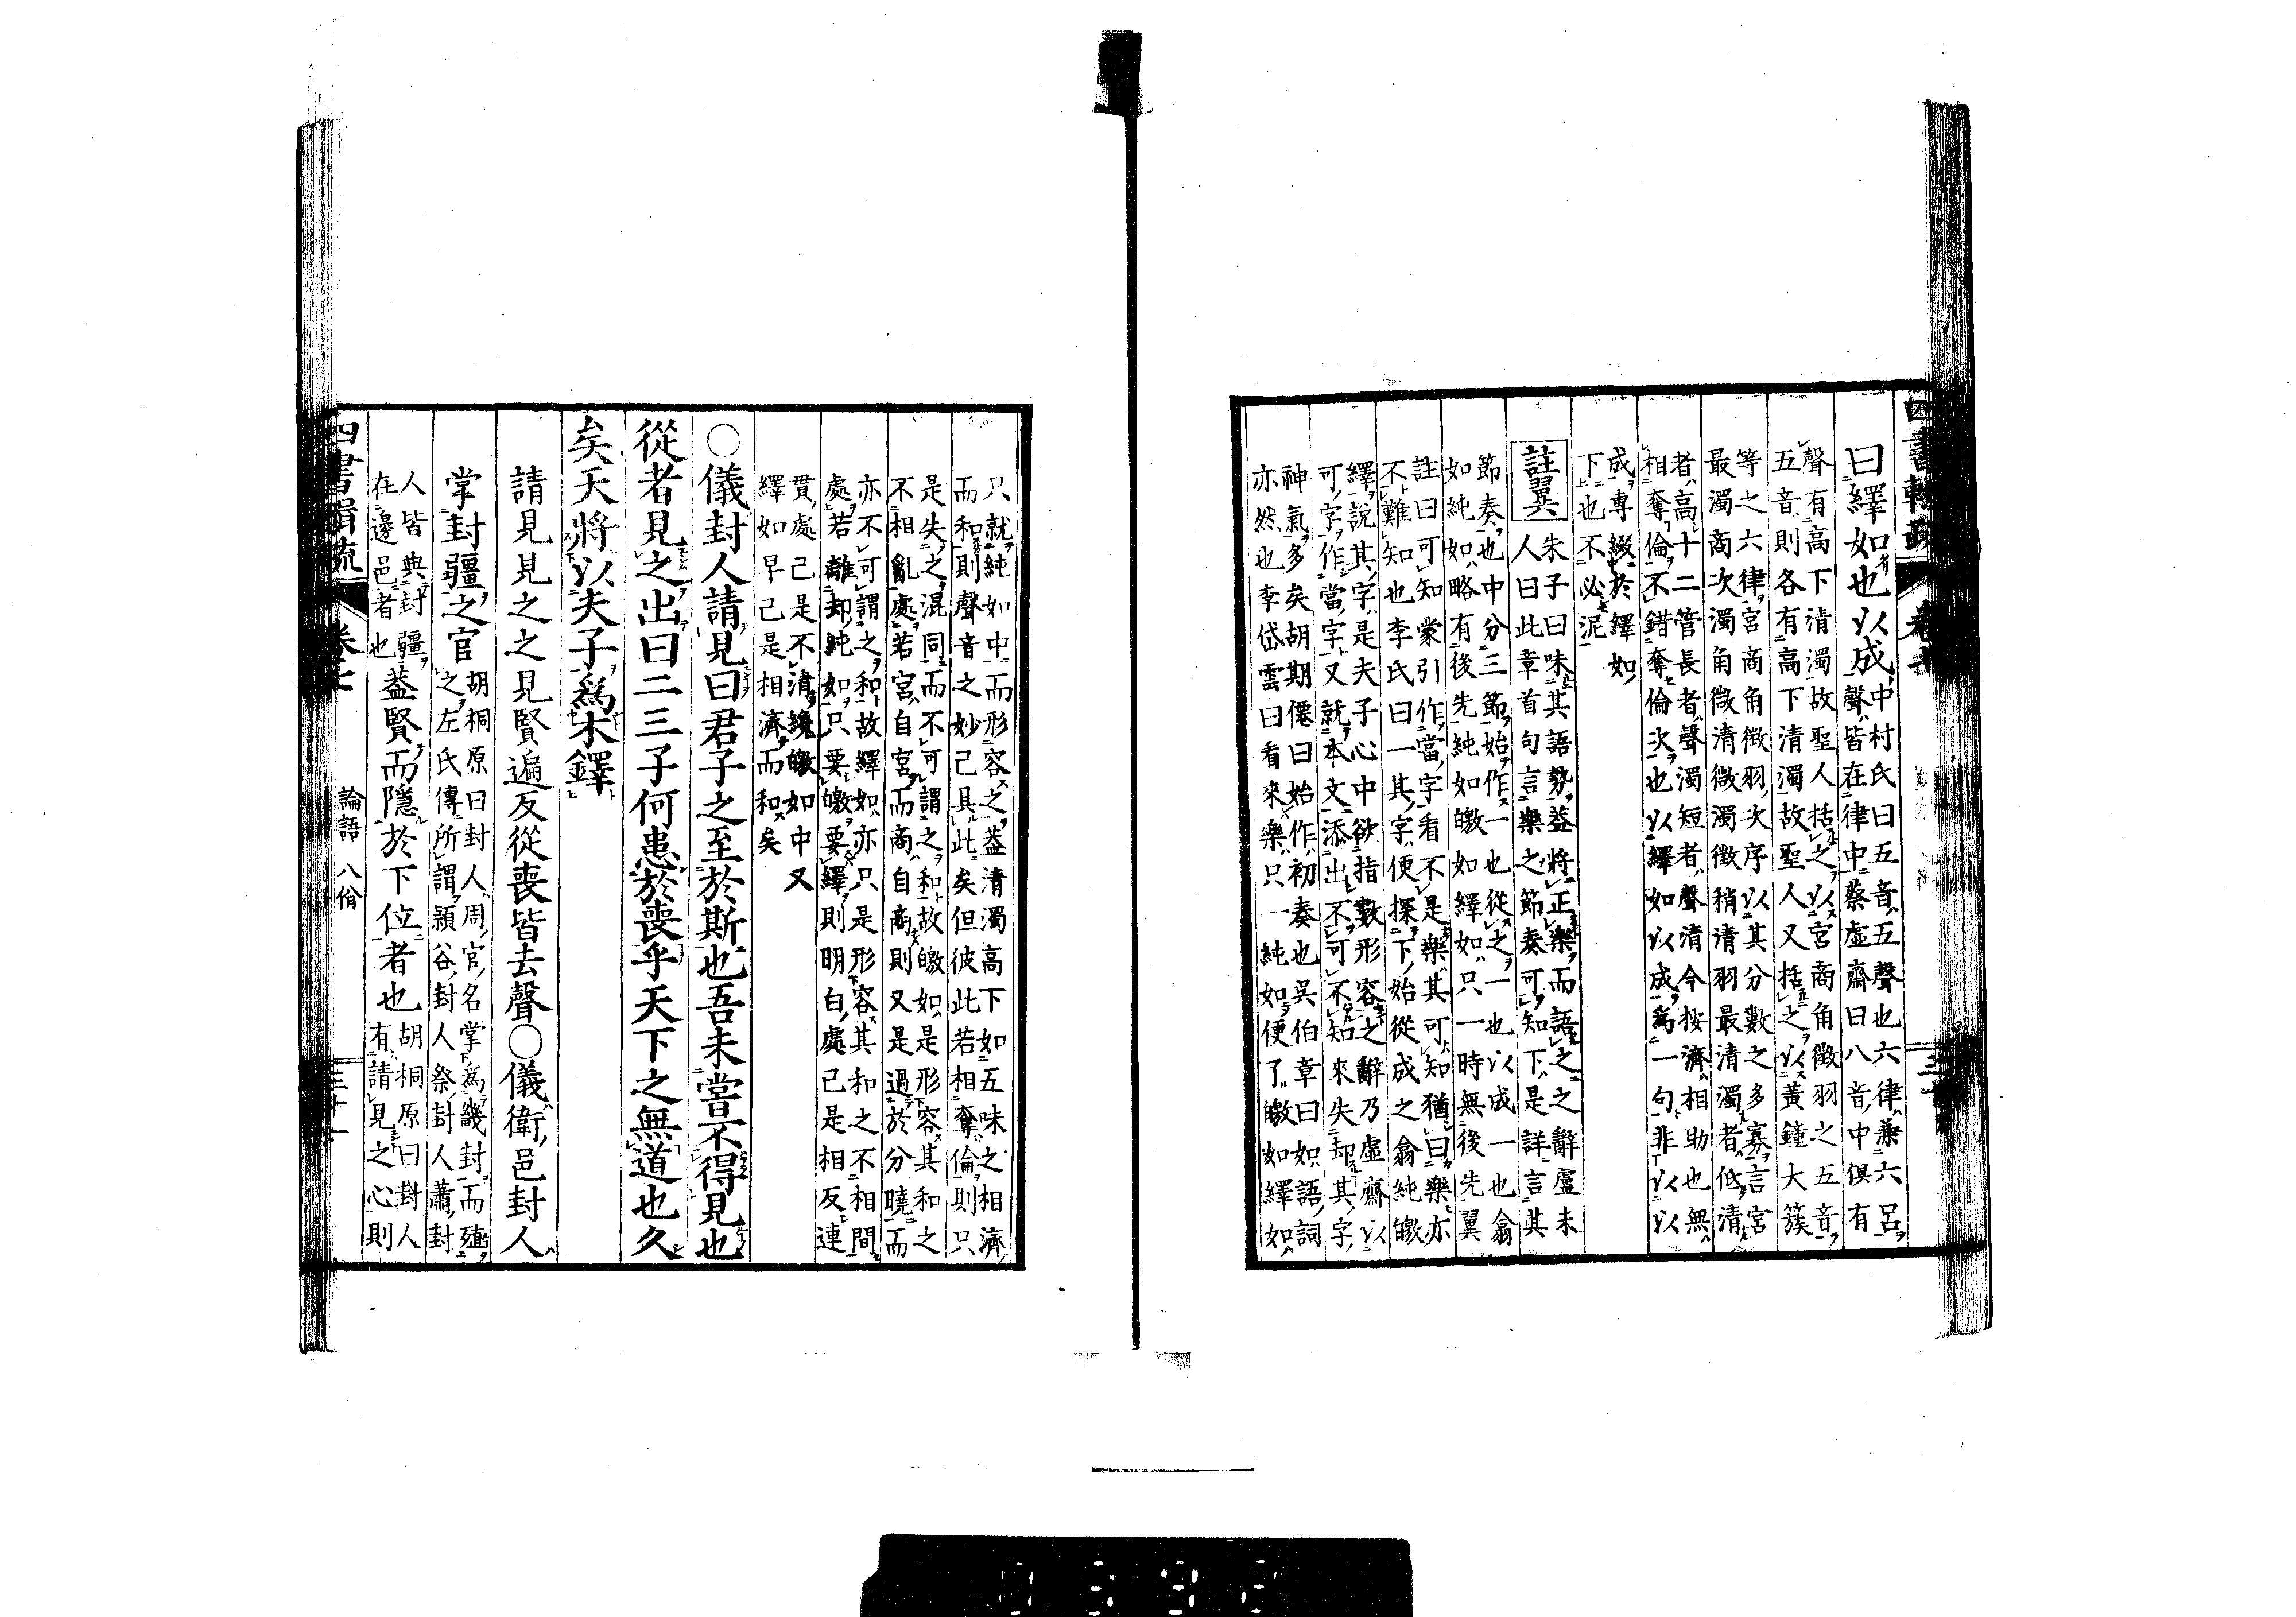 曰繹如也以成
中村氏曰五音五聲也六律兼六呂
聲皆在律中蔡虛齋曰八音中俱有
聲有高下清濁故聖人括之以宮商角徵羽之五音
五音則各有高下清濁故聖人又括之以黃鐘大簇
等之六律宮商角徵羽次序以其分數之多寡言宮
最濁商次濁角徵清徵濁徵稍清羽最清濁者低清
者高十二管長者聲濁短者聲清今按濟相助也無
相奪倫不錯奪倫次也以繹如以成為一句非以以
成專綴於繹如
下也不必泥
註翼
朱子曰味其語勢蓋將正樂而語之之辭盧未
人曰此章首句言樂之節奏可知下是詳言其
節奏也中分三節始作一也從之一也以成一也翕
如純如略有後先純如皦如繹如只一時無後先翼
註曰可知蒙引作當字看不是樂其可知猶曰樂亦
不難知也李氏曰一其字便探下始從成之翕純皦
繹說其字是夫子心中欲指數形容之辭乃虛齋以
可字作當字又就本文添出不可不知來失却其字
神氣多矣胡期僊曰始作初奏也吳伯章曰如語詞
亦然也李岱雲曰看來樂只一純如便了皦如繹如
只就純如中而形容之蓋清濁高下如五味之相濟
而和則聲音之妙已具此矣但彼此若相奪倫則只
是失之混同而不可謂之和故皦如是形容其和之
不相亂處若宮自宮而商自商則又是過於分曉而
亦不可謂之和故繹如亦只是形容其和之不相間
處若離却純如只要皦要繹則明白處已是相反連
貫處已是不清纔皦如中又
繹如早已是相濟而和矣
○儀封人請見曰君子之至於斯也吾未嘗不得見也
從者見之出曰二三子何患於喪乎天下之無道也久
矣天將以夫子為木鐸
請見見之之見賢遍反從喪皆去聲○儀衛邑封人
掌封疆之官
胡桐原曰封人周官名掌為畿封而殖
之左氏傳所謂潁谷封人祭封人蕭封
人皆典封疆
在邊邑者也
蓋賢而隱於下位者也
胡桐原曰封人
有請見之心則
四書輯疏
卷七
論語 八佾
三十一